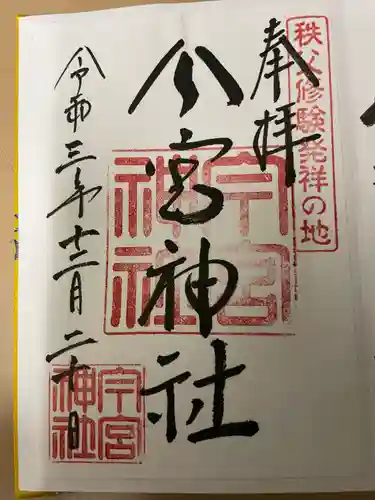 秩父修験発祥の地
奉拝
今宮神社
令和三年十二月二十日
今宮神社
今宮神社